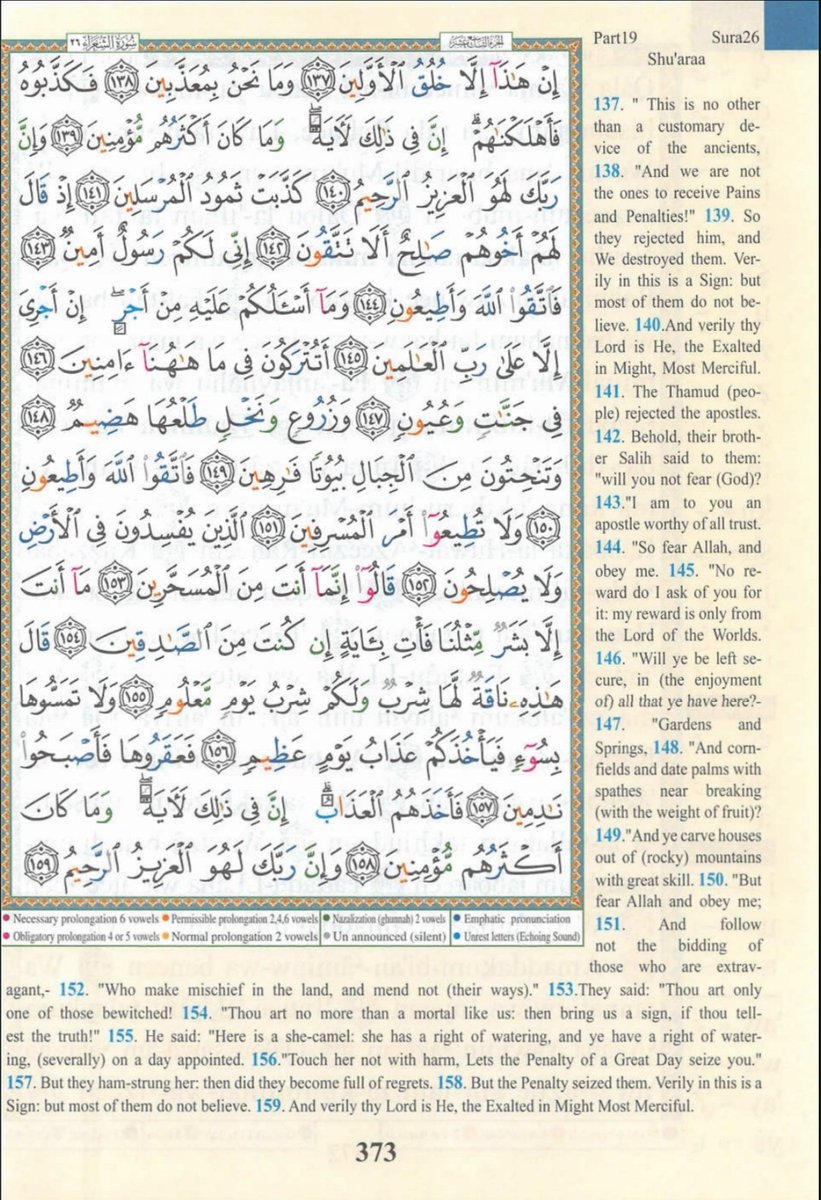 سورة الشعراء ٢٦
الجزء التاسع عشر
Part19 Sura26
Shu'araa
إِنْ هَٰذَآ إِلَّا خُلُقُ ٱلْأَوَّلِينَ ١٣٧ وَمَا نَحْنُ بِمُعَذَّبِينَ ١٣٨ فَكَذَّبُوهُ
فَأَهْلَكْنَٰهُمْ ۗ إِنَّ فِى ذَٰلِكَ لَءَايَةً ۖ وَمَا كَانَ أَكْثَرُهُم مُّؤْمِنِينَ ١٣٩ وَإِنَّ
رَبَّكَ لَهُوَ ٱلْعَزِيزُ ٱلرَّحِيمُ ١٤٠ كَذَّبَتْ ثَمُودُ ٱلْمُرْسَلِينَ ١٤١ إِذْ قَالَ
لَهُمْ أَخُوهُمْ صَٰلِحٌ أَلَا تَتَّقُونَ ١٤٢ إِنِّى لَكُمْ رَسُولٌ أَمِينٌ ١٤٣
فَٱتَّقُوا۟ ٱللَّهَ وَأَطِيعُونِ ١٤٤ وَمَآ أَسْـَٔلُكُمْ عَلَيْهِ مِنْ أَجْرٍ ۖ إِنْ أَجْرِىَ
إِلَّا عَلَىٰ رَبِّ ٱلْعَٰلَمِينَ ١٤٥ أَتُتْرَكُونَ فِى مَا هَٰهُنَآ ءَامِنِينَ ١٤٦
فِى جَنَّٰتٍ وَعُيُونٍ ١٤٧ وَزُرُوعٍ وَنَخْلٍ طَلْعُهَا هَضِيمٌ ١٤٨
وَتَنْحِتُونَ مِنَ ٱلْجِبَالِ بُيُوتًا فَٰرِهِينَ ١٤٩ فَٱتَّقُوا۟ ٱللَّهَ وَأَطِيعُونِ
١٥٠ وَلَا تُطِيعُوٓا۟ أَمْرَ ٱلْمُسْرِفِينَ ١٥١ ٱلَّذِينَ يُفْسِدُونَ فِى ٱلْأَرْضِ
وَلَا يُصْلِحُونَ ١٥٢ قَالُوٓا۟ إِنَّمَآ أَنتَ مِنَ ٱلْمُسَحَّرِينَ ١٥٣ مَآ أَنتَ
إِلَّا بَشَرٌ مِّثْلُنَا فَأْتِ بِـَٔايَةٍ إِن كُنتَ مِنَ ٱلصَّٰدِقِينَ ١٥٤ قَالَ
هَٰذِهِۦ نَاقَةٌ لَّهَا شِرْبٌ وَلَكُمْ شِرْبُ يَوْمٍ مَّعْلُومٍ ١٥٥ وَلَا تَمَسُّوهَا
بِسُوٓءٍ فَيَأْخُذَكُمْ عَذَابُ يَوْمٍ عَظِيمٍ ١٥٦ فَعَقَرُوهَا فَأَصْبَحُوا۟
نَٰدِمِينَ ١٥٧ فَأَخَذَهُمُ ٱلْعَذَابُ ۗ إِنَّ فِى ذَٰلِكَ لَءَايَةً ۖ وَمَا كَانَ
أَكْثَرُهُم مُّؤْمِنِينَ ١٥٨ وَإِنَّ رَبَّكَ لَهُوَ ٱلْعَزِيزُ ٱلرَّحِيمُ ١٥٩
Necessary prolongation 6 vowels Permissible prolongation 2,4,6 vowels Nazalization (ghunnah) 2 vowels Emphatic pronunciation
Obligatory prolongation 4 or 5 vowels Normal prolongation 2 vowels Un announced (silent) Unrest letters (Echoing Sound)
137. " This is no other
than a customary de-
vice of the ancients,
138. "And we are not
the ones to receive Pains
and Penalties!" 139. So
they rejected him, and
We destroyed them. Ver-
ily in this is a Sign: but
most of them do not be-
lieve. 140.And verily thy
Lord is He, the Exalted
in Might, Most Merciful.
141. The Thamud (peo-
ple) rejected the apostles.
142. Behold, their broth-
er Salih said to them:
"will you not fear (God)?
143."I am to you an
apostle worthy of all trust.
144. "So fear Allah, and
obey me. 145. "No re-
ward do I ask of you for
it: my reward is only from
the Lord of the Worlds.
146. "Will ye be left se-
cure, in (the enjoyment
of) all that ye have here?-
147. "Gardens and
Springs, 148. "And corn-
fields and date palms with
spathes near breaking
(with the weight of fruit)?
149."And ye carve houses
out of (rocky) mountains
with great skill. 150. "But
fear Allah and obey me;
151. And follow
not the bidding of
those who are extrav-
agant,- 152. "Who make mischief in the land, and mend not (their ways)." 153.They said: "Thou art only
one of those bewitched! 154. "Thou art no more than a mortal like us: then bring us a sign, if thou tell-
est the truth!" 155. He said: "Here is a she-camel: she has a right of watering, and ye have a right of water-
ing, (severally) on a day appointed. 156."Touch her not with harm, Lets the Penalty of a Great Day seize you."
157. But they ham-strung her: then did they become full of regrets. 158. But the Penalty seized them. Verily in this is a
Sign: but most of them do not believe. 159. And verily thy Lord is He, the Exalted in Might Most Merciful.
373